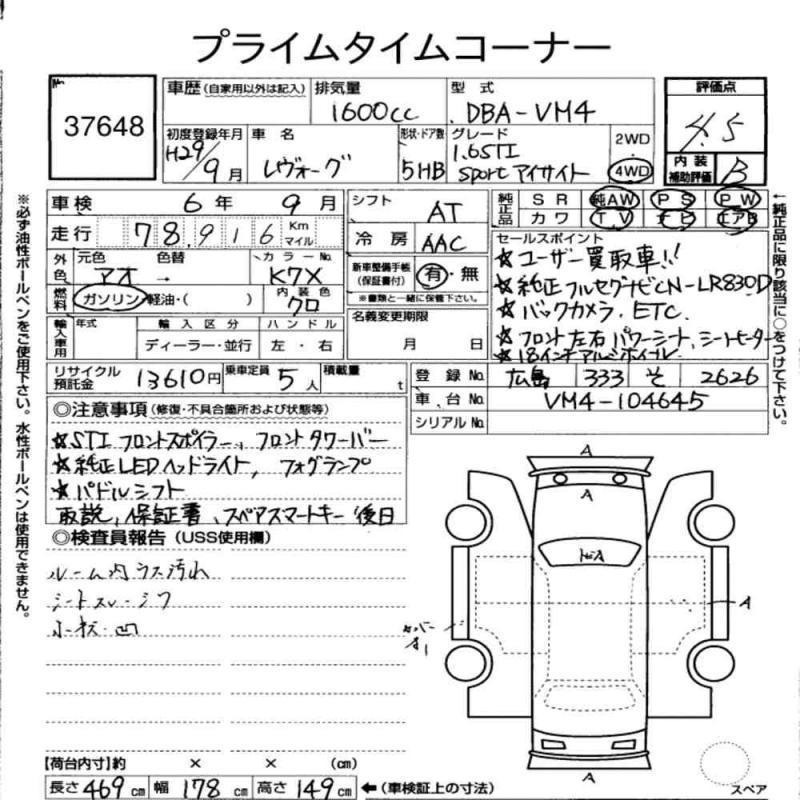 プライムタイムコーナー
No.
37648
車歴 (自家用以外は記入)
排気量
1600cc
型式
DBA-VM4
評価点
4.5
内装補助評価
B
初度登録年月
H29/9月
車名
レヴォーグ
形状・ドア数
5HB
グレード
1.6STI
Sport アイサイト
2WD
4WD
車検 6年 9月
走行 78,916 Km マイル
シフト AT
冷房 AAC
純正品 SR 純AW PS PW
カワ TV ナビ エアB
外色 元色 アオ 色替 → カラーNo. K7X
燃料 ガソリン・軽油・( ) 内装色 クロ
新車整備手帳(保証書付) 有・無
※書類と一緒に保管下さい。
セールスポイント
☆ユーザー買取車!!
☆純正フルセグナビCN-LR830D
☆バックカメラ、ETC、
☆フロント左右パワーシート、シートヒーター
☆18インチアルミホイール
輸入車用 年式 輸入区分 ディーラー・並行 ハンドル 左・右
名義変更期限 月 日
リサイクル預託金 13610円 乗車定員 5人 積載量 t
登録No. 広島 333 そ 2626
車台No. VM4-104645
シリアルNo.
◎注意事項 (修復・不具合箇所および状態等)
☆STI フロントスポイラー、フロントタワーバー
☆純正LEDヘッドライト、フォグランプ
☆パドルシフト
取説、保証書、スペアスマートキー後日
◎検査員報告 (USS使用欄)
ルーム内ラス汚れ
シートスレ・シワ
小キズ・凹
A
A
A
A
A
スペア
【荷台内寸】約 × × (cm)
長さ 469cm 幅 178cm 高さ 149cm ←(車検証上の寸法)
※必ず油性ボールペンをご使用下さい。水性ボールペンは使用できません。
←純正品に限り該当に○をつけて下さい。